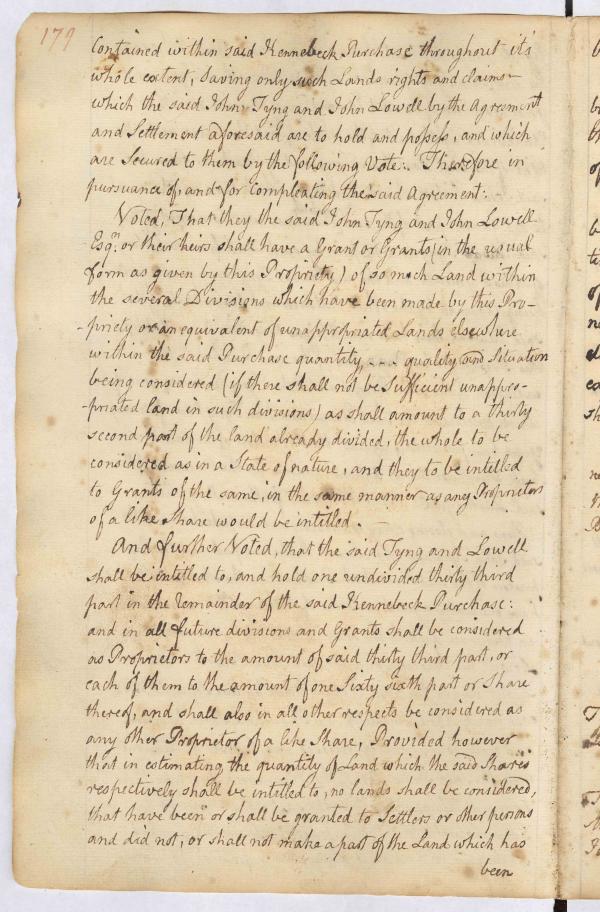 179
Contained within said Kennebeck Purchase throughout it's
whole extent, saving only such Lands rights and claims
which the said John Tyng and John Lowell by the Agreement
and Settlement aforesaid are to hold and possess, and which
are Secured to them by the following Vote. Therefore in
pursuance of, and for compleating the said Agreement:
Voted, That they the said John Tyng and John Lowell
Esqrs. or their heirs shall have a Grant or Grants (in the usual
form as given by this Propriety) of so much Land within
the several Divisions which have been made by this Pro-
-priety or an equivalent of unappropriated Lands elsewhere
within the said Purchase quantity, - - - quality and Situation
being considered (if there shall not be Sufficient unappro-
-priated land in such divisions) as shall amount to a thirty
second part of the land already divided, the whole to be
considered as in a State of nature, and they to be intitled
to Grants of the same, in the same manner as any Proprietors
of a like share would be intitled.
And further Voted, that the said Tyng and Lowell
shall be intitled to, and hold one undivided thirty third
part in the remainder of the said Kennebeck Purchase:
and in all future divisions and Grants shall be considered
as Proprietors to the amount of said thirty third part, or
each of them to the amount of one Sixty sixth part or Share
thereof, and shall also in all other respects be considered as
any other Proprietor of a like Share, Provided however
that in estimating the quantity of Land which the said Shares
respectively shall be intitled to, no lands shall be considered,
that have been or shall be granted to Settlers or other persons
and did not, or shall not make a part of the Land which has
been